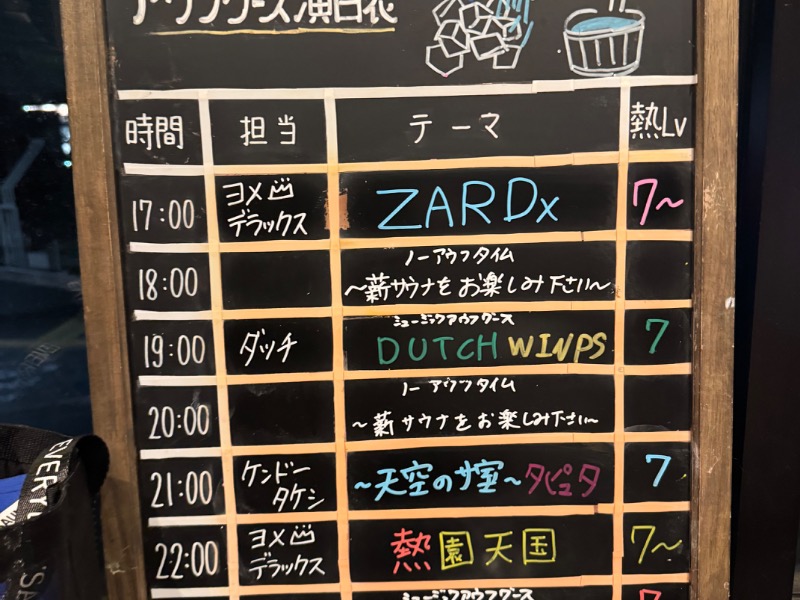 アウフグース演目表
時間 担当 テーマ 熱Lv
17:00 ヨメ山 デラックス ZARDx 7〜
18:00 ノーアウフタイム
〜薪サウナをお楽しみ下さい〜
19:00 ダッチ ミュージックアウフグース
DUTCH WINPS 7
20:00 ノーアウフタイム
〜薪サウナをお楽しみ下さい〜
21:00 ケンドータケシ 〜天空のサ室〜タピュタ 7
22:00 ヨメ山 デラックス 熱園天国 7〜
ミュージックアウフグース
EVERY